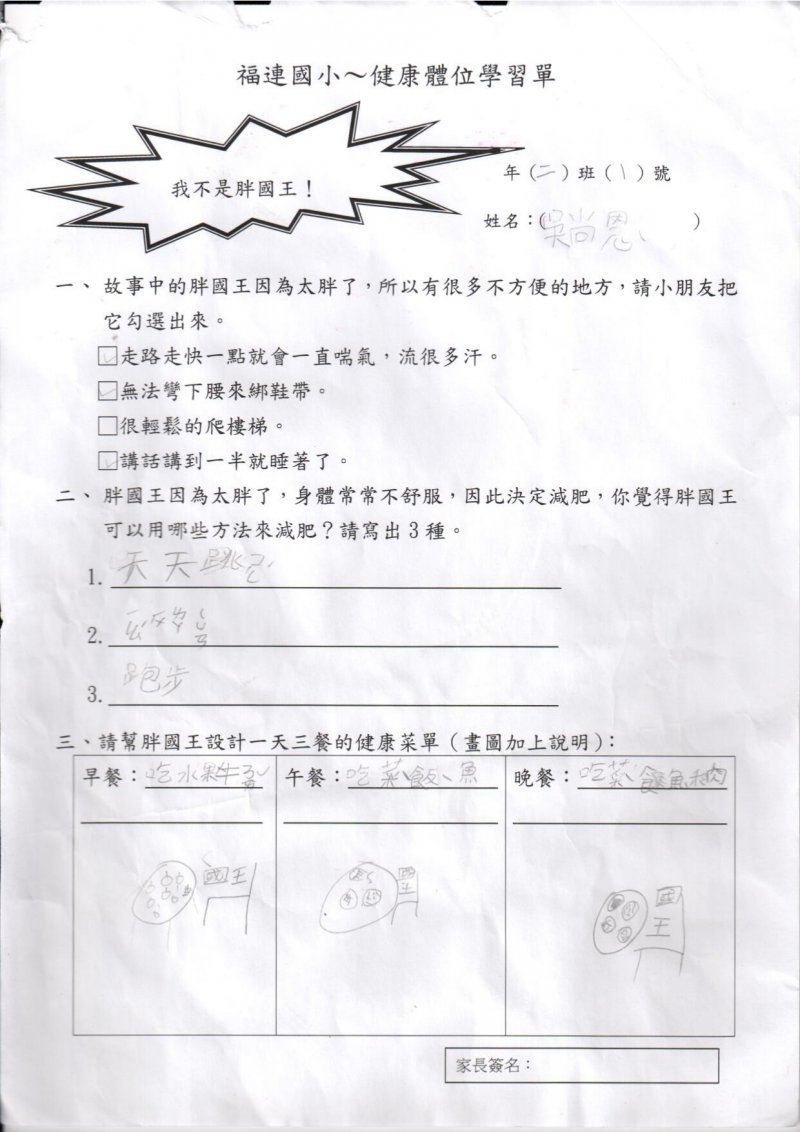 福連國小～健康體位學習單
我不是胖國王！
年（二）班（1）號
姓名：（吳尚恩）
一、故事中的胖國王因為太胖了，所以有很多不方便的地方，請小朋友把
它勾選出來。
☑走路走快一點就會一直喘氣，流很多汗。
☑無法彎下腰來綁鞋帶。
□很輕鬆的爬樓梯。
☑講話講到一半就睡著了。
二、胖國王因為太胖了，身體常常不舒服，因此決定減肥，你覺得胖國王
可以用哪些方法來減肥？請寫出3種。
1. 天天跳
2.
3. 跑步
三、請幫胖國王設計一天三餐的健康菜單（畫圖加上說明）：
早餐：吃水果牛ㄋㄞˇ 午餐：吃菜、飯、魚 晚餐：吃菜、飯魚和肉
國王 國王 國王
家長簽名：